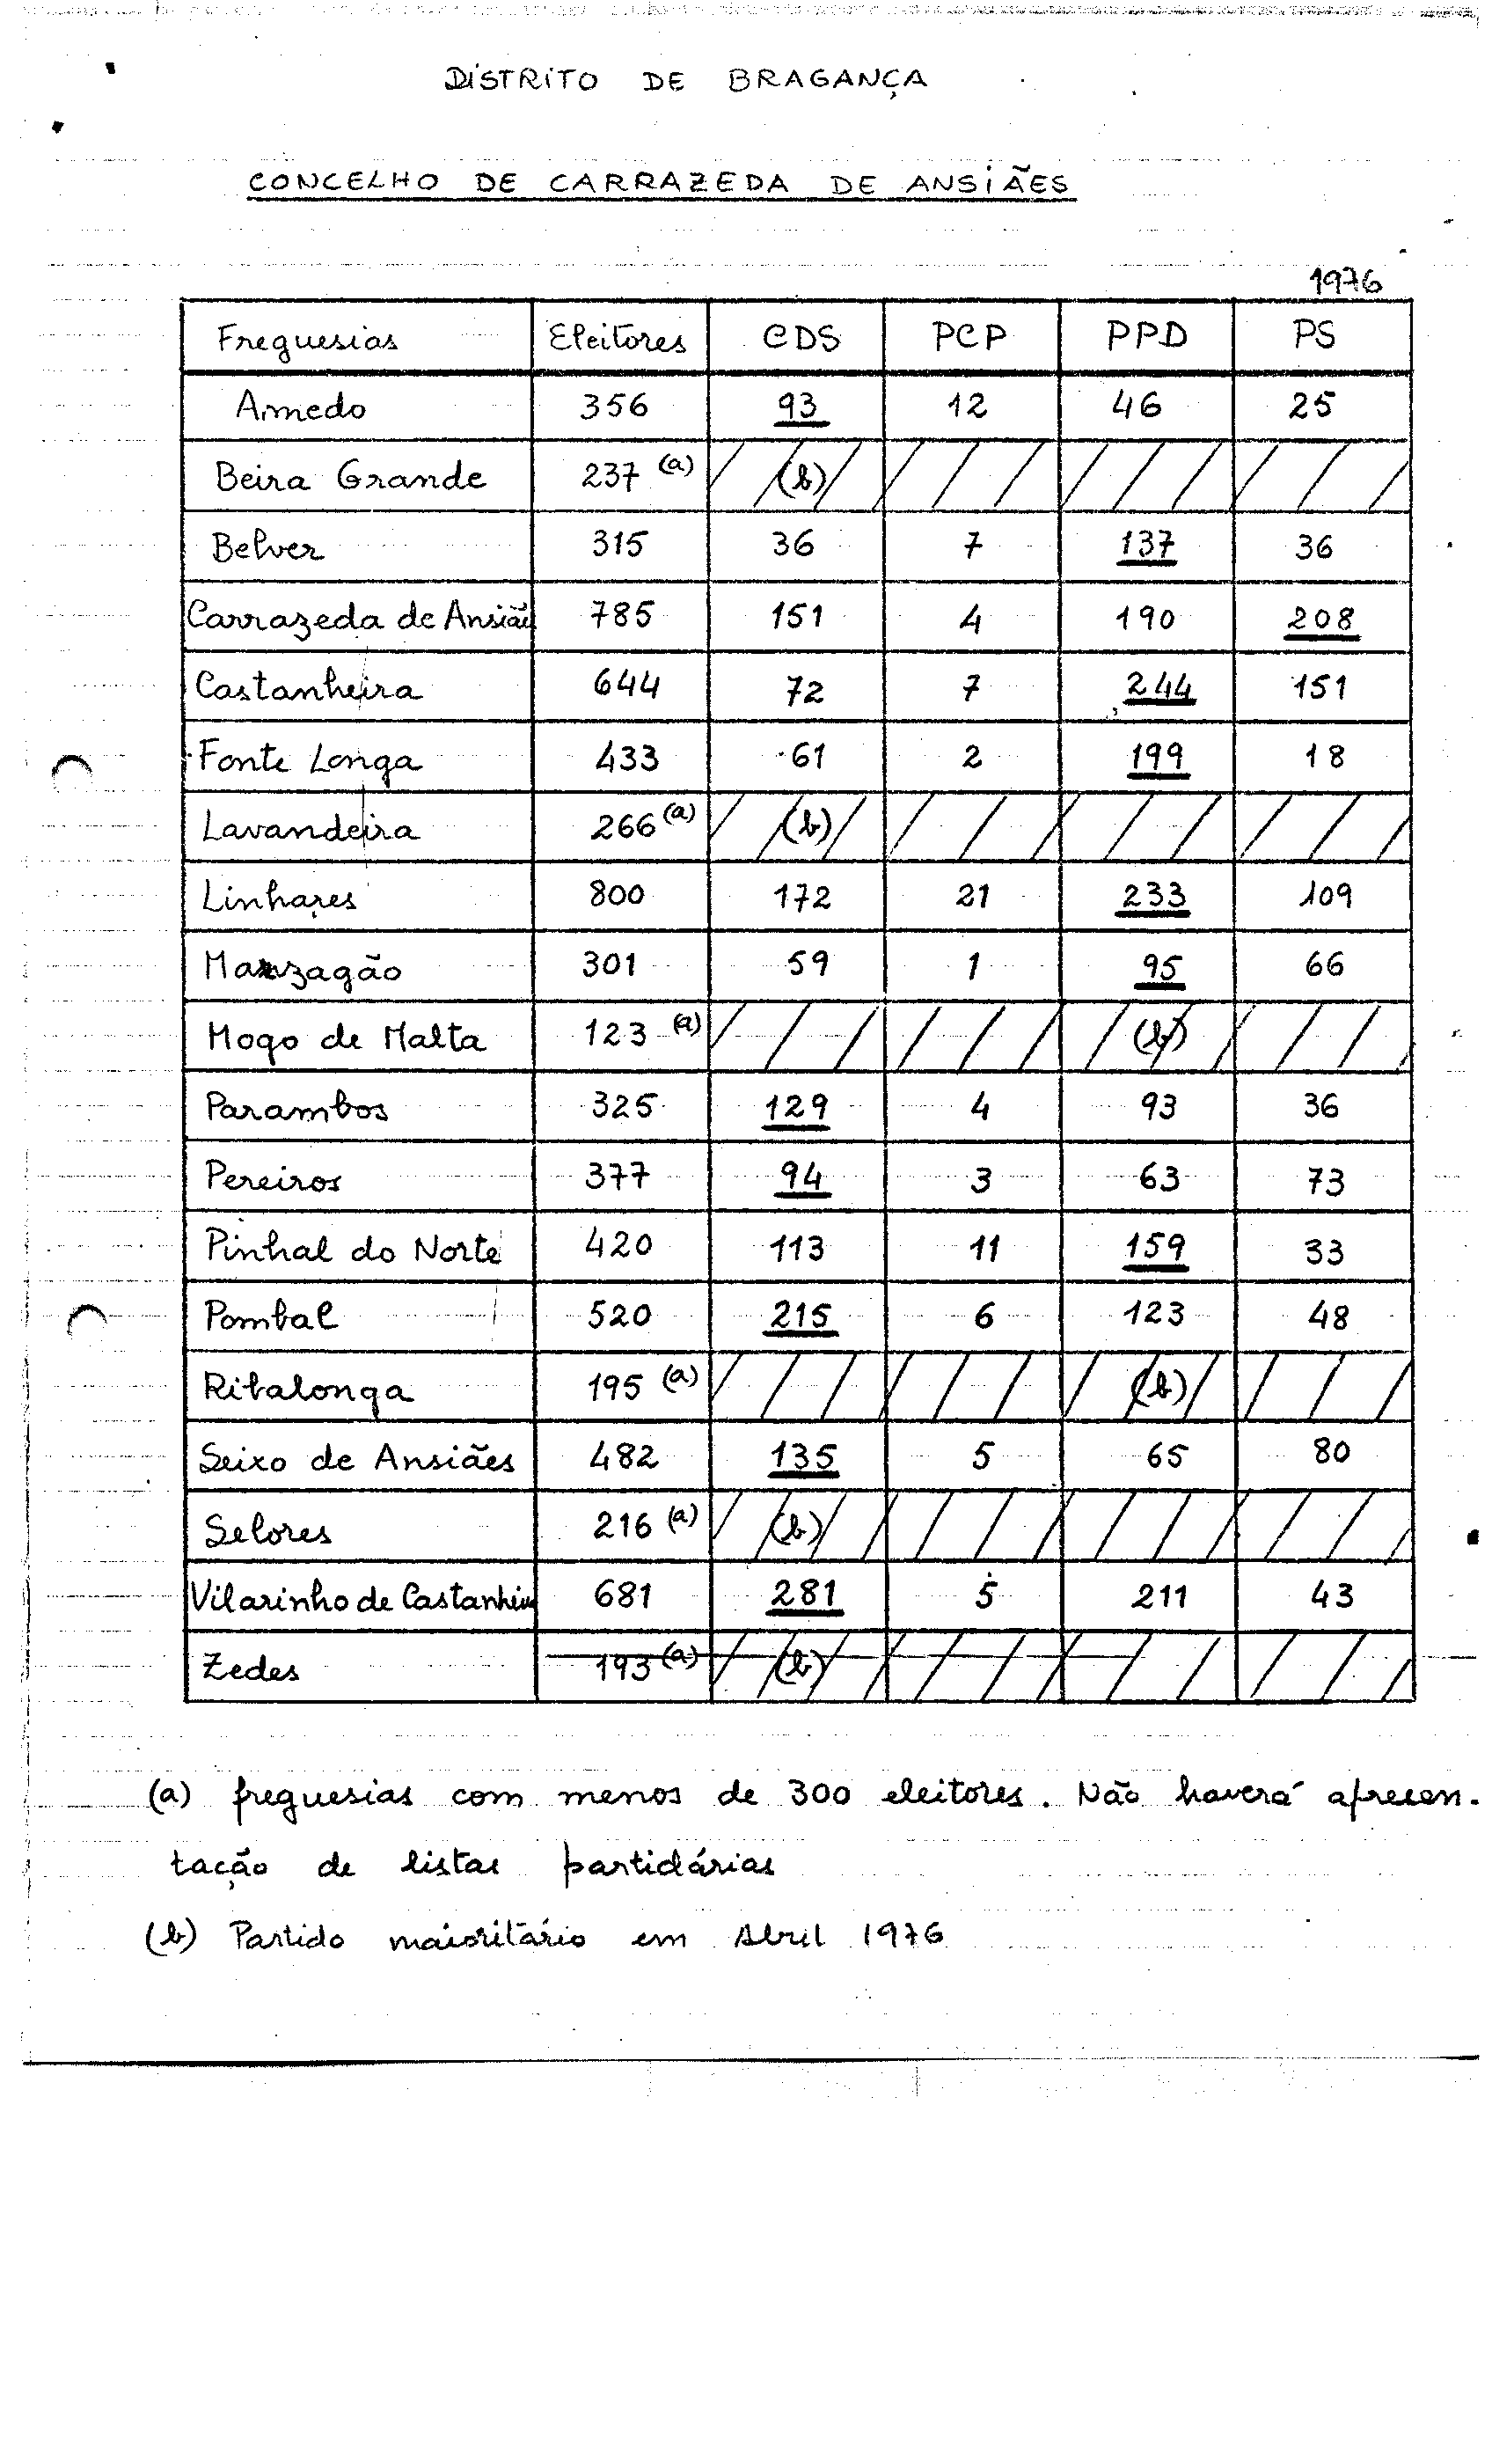 DISTRITO DE BRAGANÇA
CONCELHO DE CARRAZEDA DE ANSIÃES
1976
Freguesias Eleitores CDS PCP PPD PS
Amedo 356 93 12 46 25
Beira Grande 237 (a) (b)
Belver 315 36 7 137 36
Carrazeda de Ansiães 785 151 4 190 208
Castanheira 644 72 7 244 151
Fonte Longa 433 61 2 199 18
Lavandeira 266 (a) (b)
Linhares 800 172 21 233 109
Marzagão 301 59 1 95 66
Mogo de Malta 123 (a) (b)
Parambos 325 129 4 93 36
Pereiros 377 94 3 63 73
Pinhal do Norte 420 113 11 159 33
Pombal 520 215 6 123 48
Ribalonga 195 (a) (b)
Seixo de Ansiães 482 135 5 65 80
Selores 216 (a) (b)
Vilarinho de Castanheira 681 281 5 211 43
Zedes 193 (a) (b)
(a) freguesias com menos de 300 eleitores. Não haverá apresen-
tação de listas partidárias
(b) Partido maioritário em Abril 1976